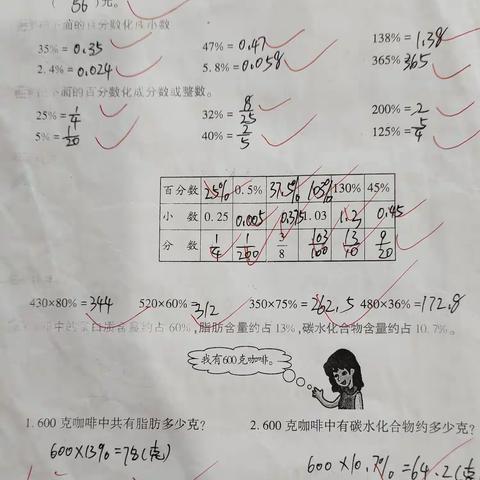 ( 56 )元。
下面的百分数化成小数
35% = 0.35 47% = 0.47 138% = 1.38
2.4% = 0.024 5.8% = 0.058 365% 365
下面的百分数化成分数或整数。
25% = 1/4 32% = 8/25 200% = 2
5% = 1/20 40% = 2/5 125% = 5/4
百分数 25% 0.5% 37.5% 103% 130% 45%
小 数 0.25 0.005 0.375 1.03 1.3 0.45
分 数 1/4 1/200 3/8 103/100 13/10 9/20
430×80% = 344 520×60% = 312 350×75% = 262.5 480×36% = 172.8
啡中的蛋白质含量约占 60%,脂肪含量约占 13%,碳水化合物含量约占 10.7%。
我有600克咖啡。
1. 600 克咖啡中共有脂肪多少克? 2. 600 克咖啡中有碳水化合物约多少克?
600×13% = 78(克) 600×10.7% = 64.2(克